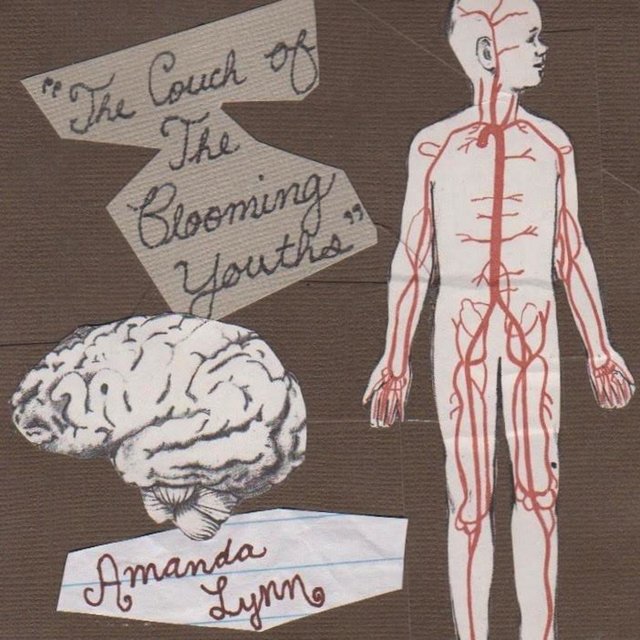 "The Couch of
The
Blooming
Youths"
Amanda
Lynn